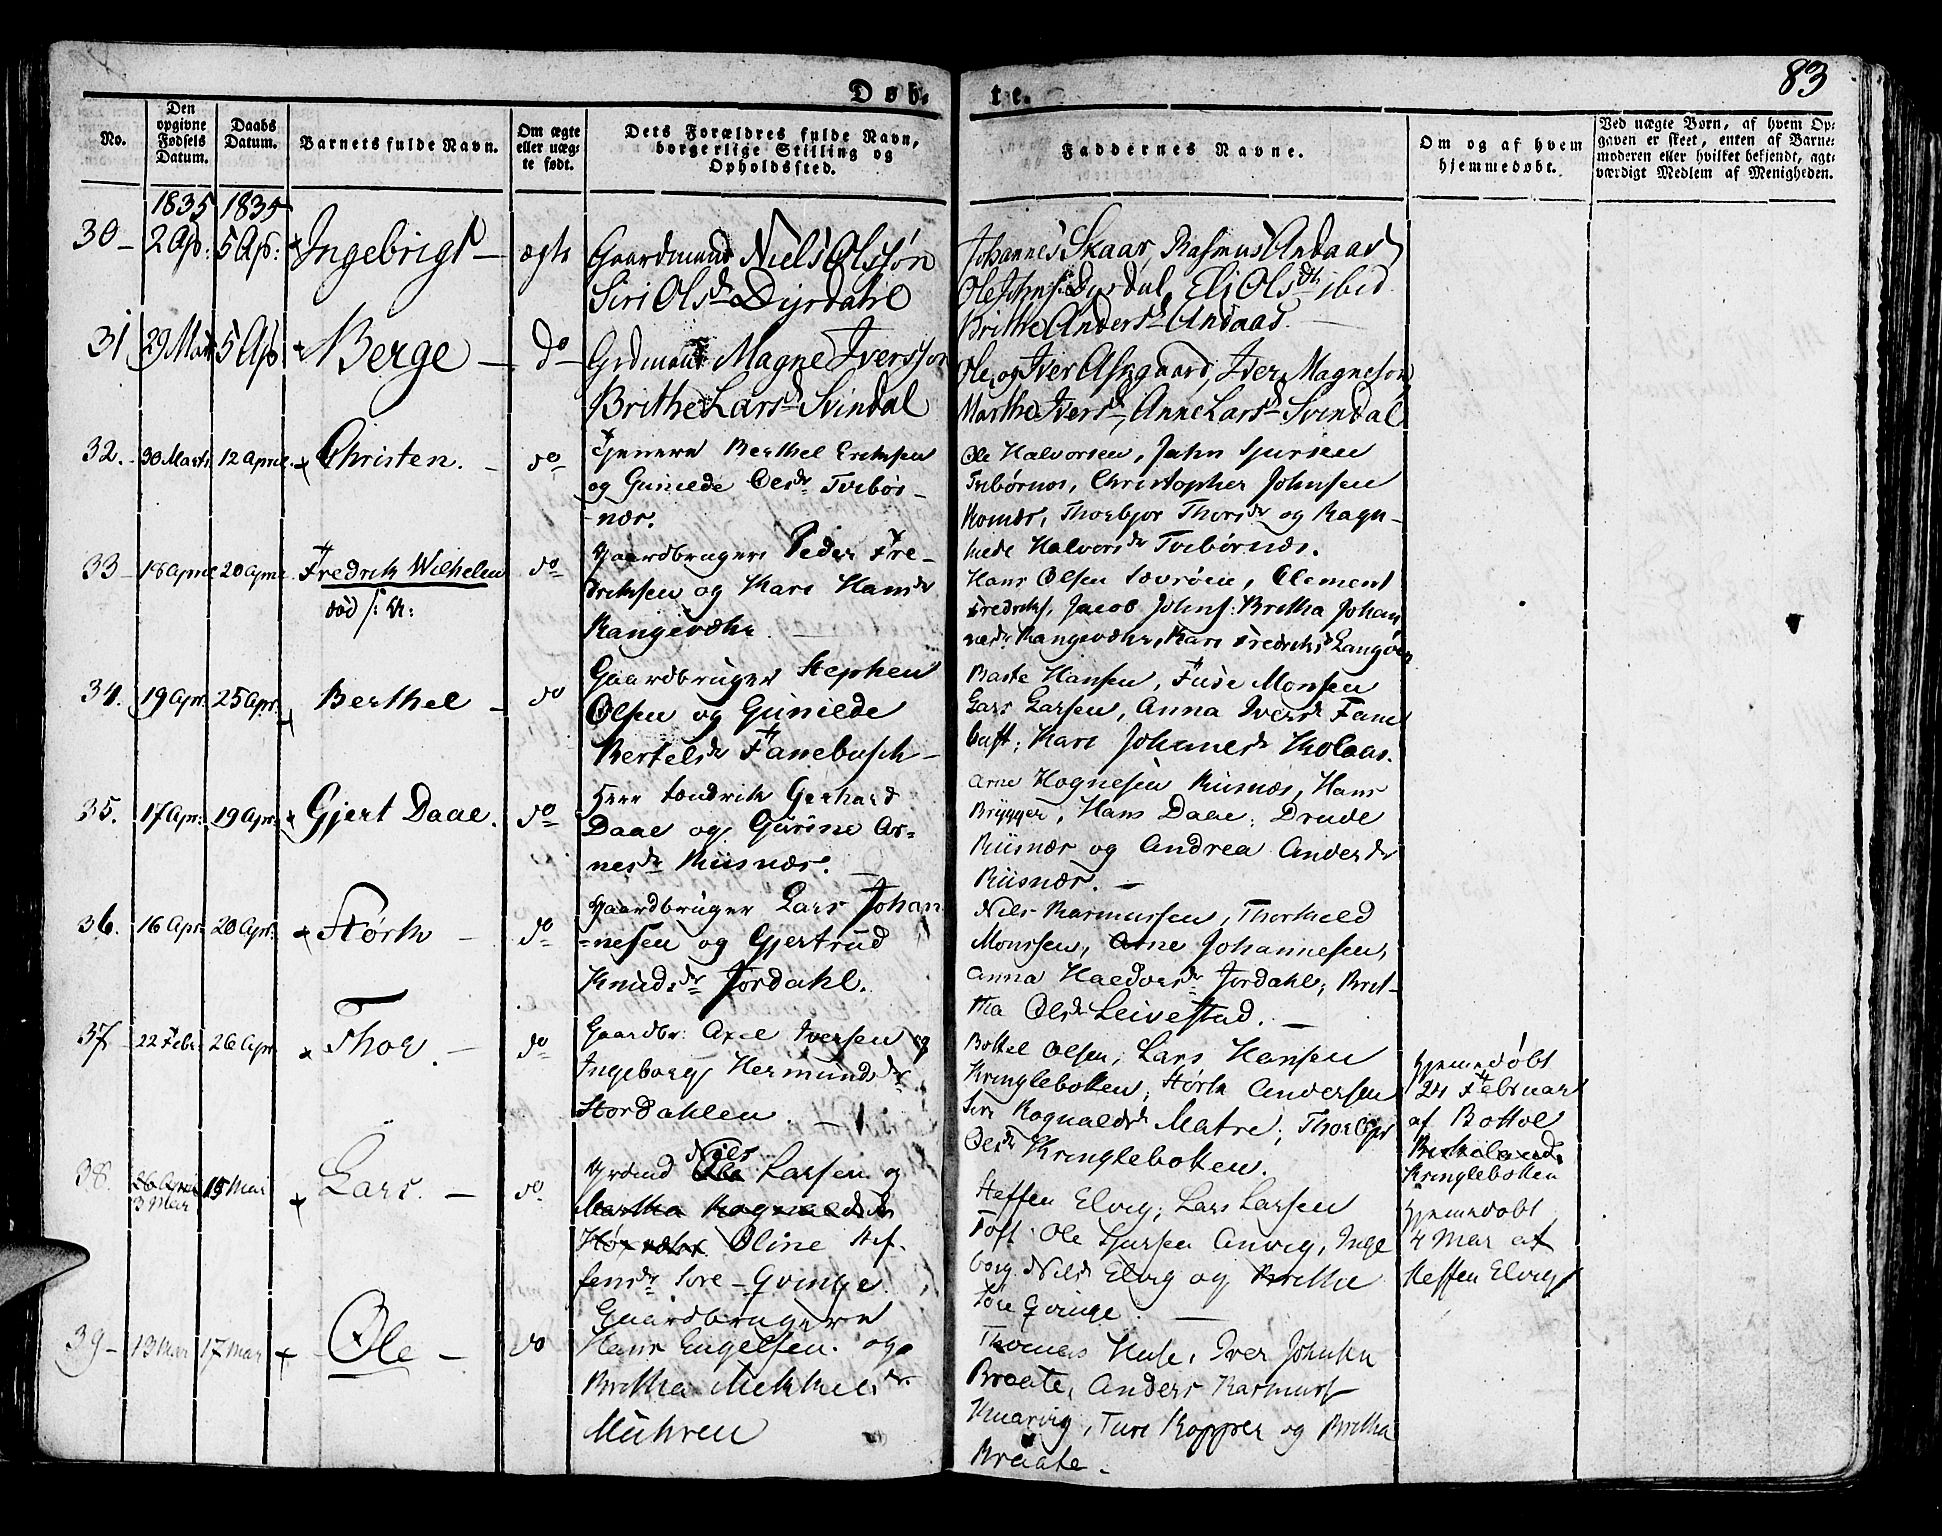 Døb- te. 83
No. Den opgivne Fødsels Datum. Daabs Datum. Barnets fulde Navn. Om ægte eller uægte født. Dets Forældres fulde Navn, borgerlige Stilling og Opholdssted. Faddernes Navne. Om og af hvem hjemmedøbt. Ved uægte Børn, af hvem Opgaven er skeet, enten af Barnemoderen eller hvilket bekjendt, agtværdigt Medlem af Menigheden.
1835 1835
30 - 2 Ap: 5 Ap: Ingebrigt - ægte Gaardmand Niels Olssøn
Siri Olsdr Dyrdahl
Johannes Skaar, Rasmus Andaas
Ole Johns: Dyrdal, Eli Olsdtr ibid
Brithe Andersd Andaas.
31 29 Mar 5 Ap Berge - do Grdmand Magne Iverssøn
Brithe Larsd Svindal
Ole og Iver Asgaard, Iver Magnesøn
Marthe Iversd, Anne Larsd Svindal
32. 30 Marts 12 April Christen. - do Tjenere Berthel Eriksen
og Gunilde Olsdr Tvebør-
-nær.
Ole Halvorsen, John Sjursen
Tvebørnæs, Christopher Johnsen
Romær, Thorbjør Thorsdr og Ragn-
hilde Halvorsdr Tvebørnæs.
33 - 18 April 20 April Fredrik Wilhelm do
død /: A:
Gaardbruger Peder Fre-
driksen og Kari Hansdr
Rangevæhr
Hans Olsen Søvrøen, Clement
Fredriks, Jacob Johns: Britha Johan
nesdr Rangevæhr, Kari Fredriksd Langøen
34. 19 Apr. 25 Apr. Berthel - do Gaardbruger Stephen
Olsen og Gunilde
Bertelsdr Fanebusch -
Baste Hansen, Fuse Monsen
Lars Larsen, Anna Iversdr Fane
buft; Kari Johanesdr Kolaas.
35. 17 Apr: 19 Apr: Gjert Daae. do Herr Londrik Gerhard
Daae og Gurine Ar=
nesdr Riisnær. -
Arne Hognesen Riisnæs, Hans
Brygger, Hans Daae; Drude
Riisnær og Andrea Andersdr
Riisnær. -
36. 16 Apr 20 Apr. Størk - do Gaardbruger Lars Johan
=nesen og Gjertrud
Knudsdr Jordahl.
Nils Rasmussen, Thorkild
Monssen, Arne Johannesen,
Anna Haldorsdr Jordahl; Brit-
tha Olsdr Leivestad. -
37 22 Febr. 26 Apr. Thor. - do Gaardbr. Axel Iversen og
Ingeborg Hermundsdr
Stordahlen. -
Bottel Olsen; Lars Hansen
Kringlebotten, Størk Andersen
Siri Rognaldsdr Matre; Thorbjør
Olsdr Kringlebotten.
hjemedøbt
24 Februar
af Bottol
Kringlebotten
38. 26 April 3 Mai 15 Mai Lars. - do Grdmd Ole Nils Larsen og
Martha Rognaldsdr
Oline Stef-
fensdr Søre - Qvinge.
Steffen Elvig; Lars Larsen
Toft. Ole Sjursen Anvig, Inge
borg Nilsdr Elvig og Britha
Søre Qvinge. -
hjemedøbt
4 Mai af
Steffen Elvig
39 - 13 Mai 17 Mai Ole - do Gaardbrugere
Hans Engelsen. og
Britha Mikkelsdr.
Muhren
Thomas Huse, Iver Johnsen
Braate, Anders Rasmuss
Knarvig, Turi Kopper og Britha
Braate.